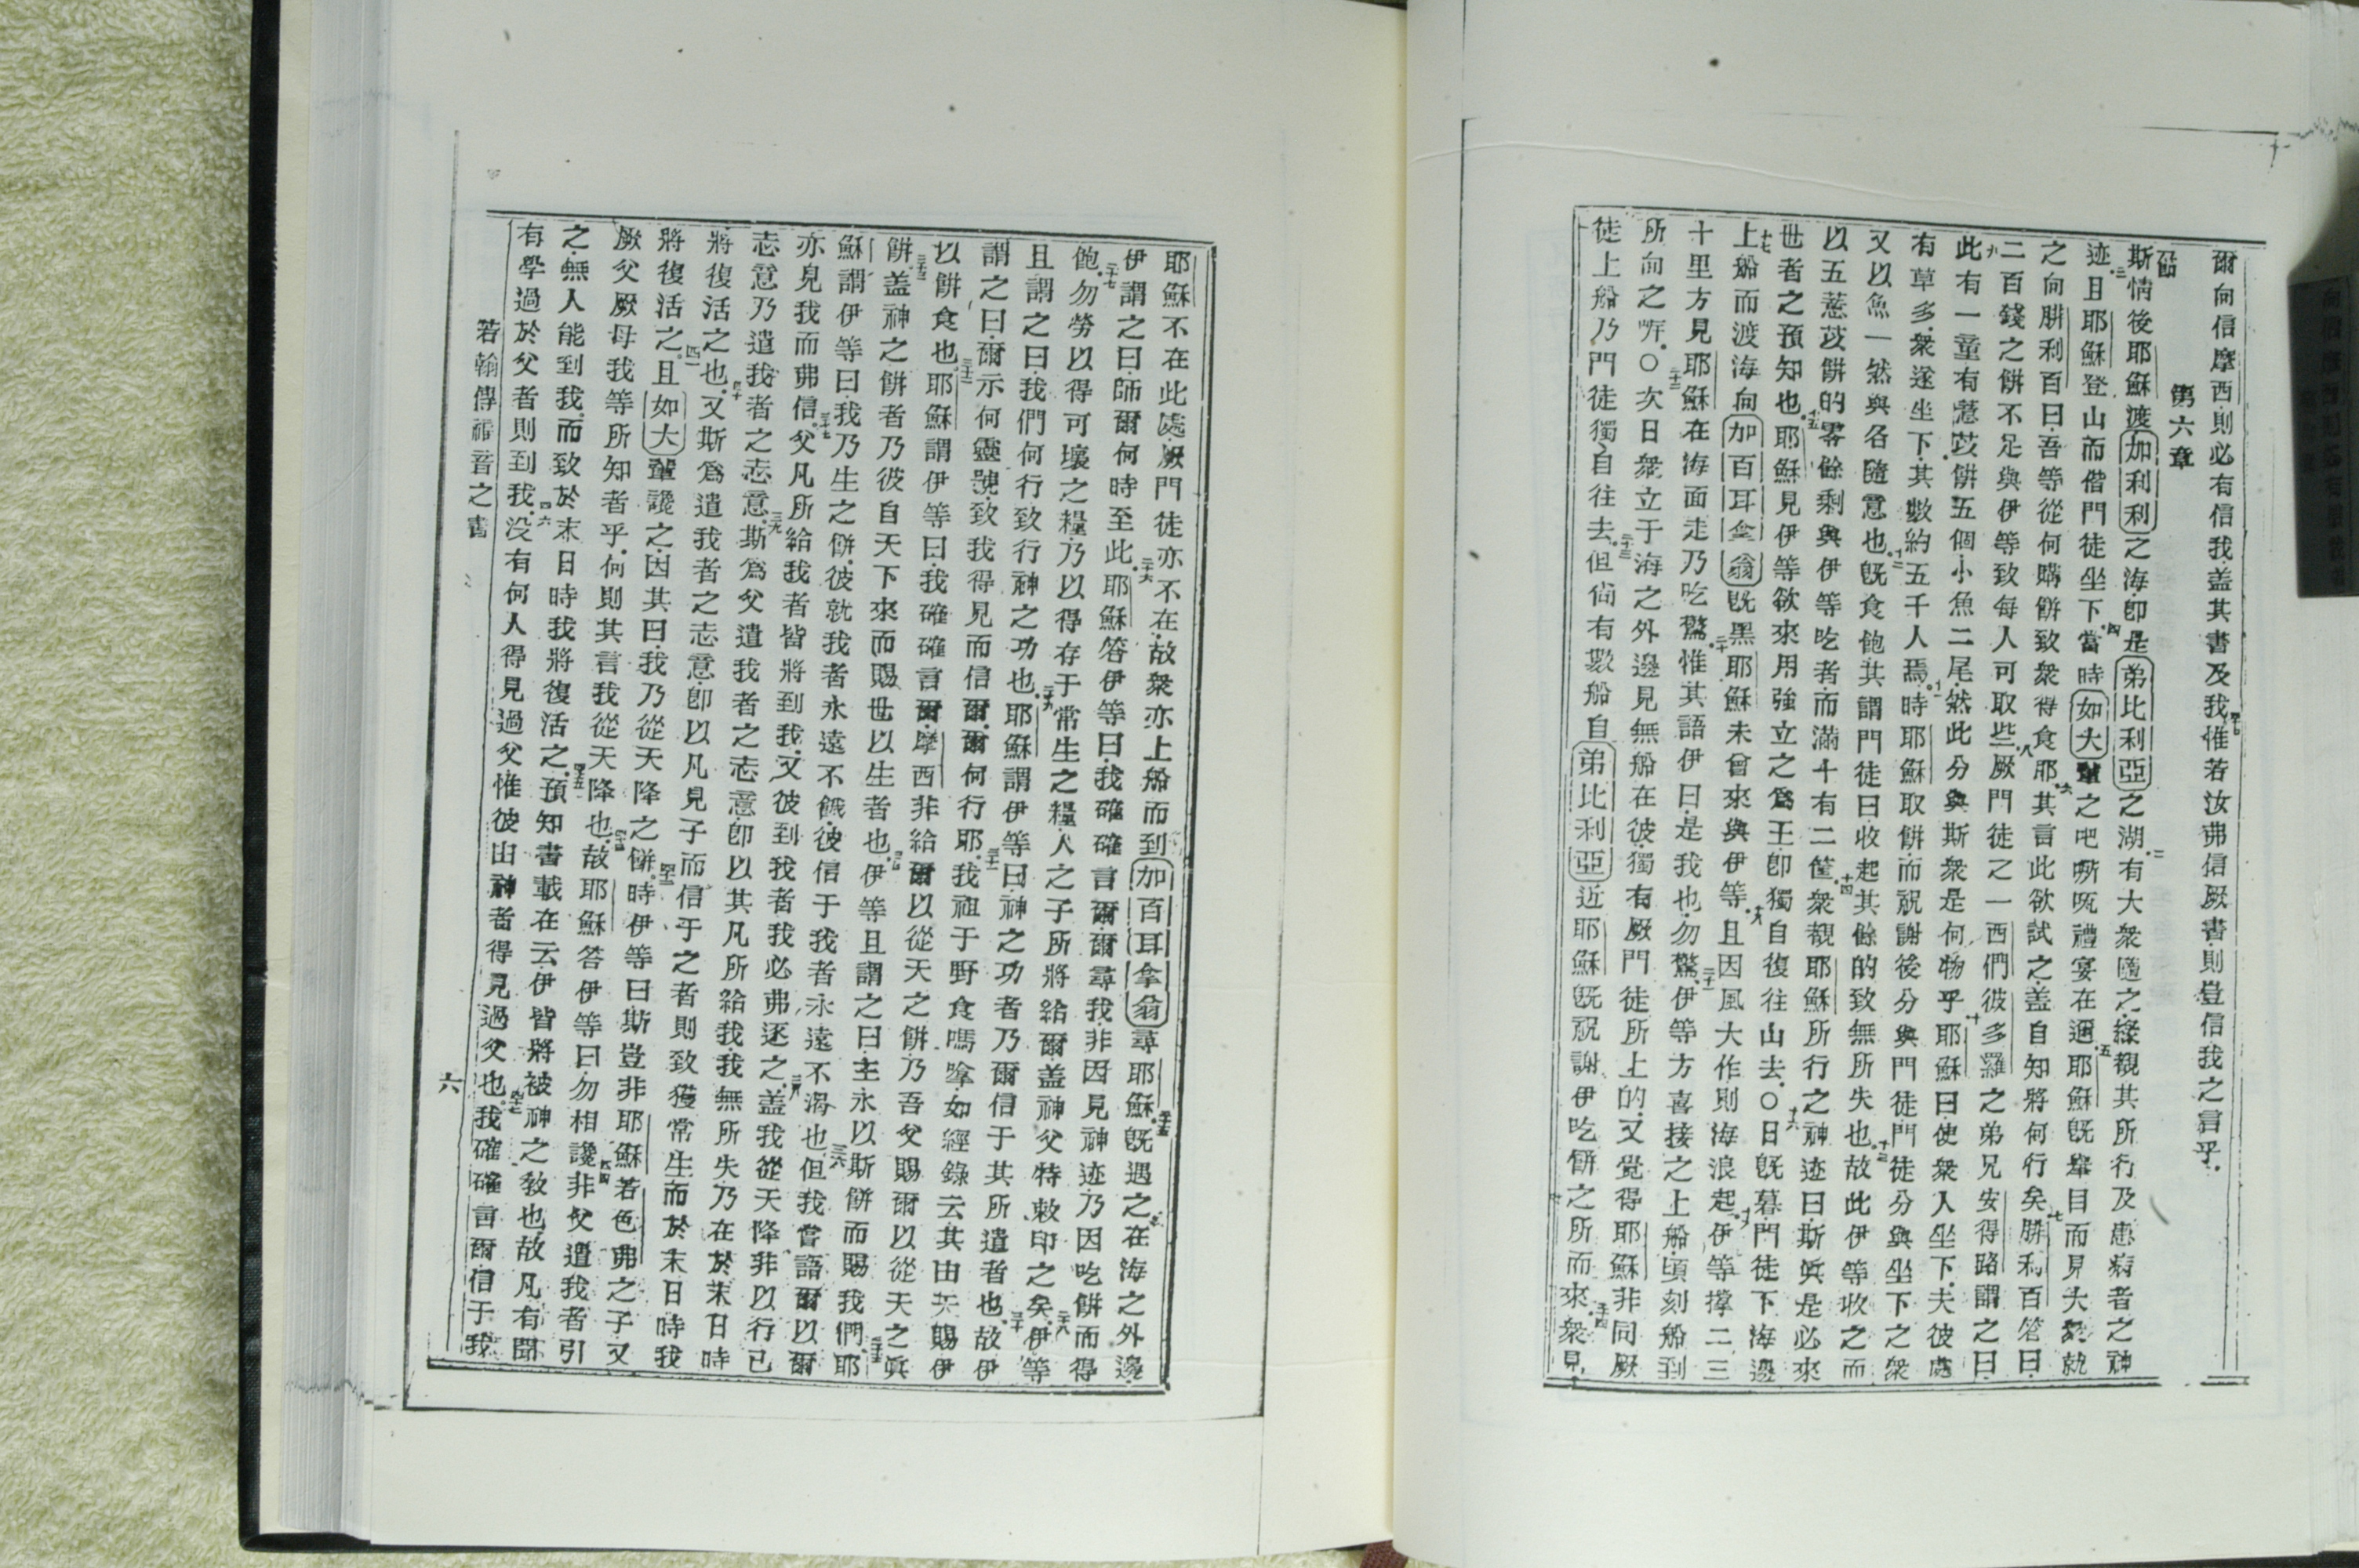 爾向信摩西則必有信我盖其書及我惟若汝弗信厥書則豈信我之言乎
第六章
斯情後耶穌渡加利利之海卽是弟比利亞之湖有大衆隨之緣覩其所行及患病者之神
迹且耶穌登山而偕門徒坐下當時如大輩之吧𠺕呱禮宴在邇耶穌旣舉目而見大衆就
之向腓利百曰吾等從何購餅致衆得食耶其言此欲試之盖自知將何行矣腓利百答曰
二百錢之餅不足與伊等致每人可取些厥門徒之一西們彼多羅之弟兄安得路謂之曰
此有一童有薏苡餅五個小魚二尾然此分與斯衆是何物乎耶穌曰使衆人坐下夫彼處
有草多衆遂坐下其數約五千人焉時耶穌取餅而祝謝後分與門徒門徒分與坐下之衆
又以魚一然與各隨意也旣食飽其謂門徒曰收起其餘的致無所失也故此伊等收之而
以五薏苡餅的零餘剩與伊等吃者而滿十有二筐衆覩耶穌所行之神迹曰斯眞是必來
世者之預知也耶穌見伊等欲來用強立之爲王卽獨自復往山去○日旣暮門徒下海邊
上船而渡海向加百耳拿翁旣黑耶穌未曾來與伊等且因風大作則海浪起伊等撑二三
十里方見耶穌在海面走乃吃驚惟其語伊曰是我也勿驚伊等方喜接之上船頃刻船到
所向之嚈○次日衆立于海之外邊見無船在彼獨有厥門徒所上的又覺得耶穌非同厥
徒上船乃門徒獨自往去但尙有數船自弟比利亞近耶穌旣祝謝伊吃餅之所而來衆見
耶穌不在此處厥門徒亦不在故衆亦上船而到加百耳拿翁尋耶穌旣遇之在海之外邊
伊謂之曰師爾何時至此耶穌答伊等曰我確確言爾爾尋我非因見神迹乃因吃餅而得
飽勿勞以得可壞之糧乃以得存于常生之糧人之子所將給爾盖神父特敕印之矣伊等
且謂之曰我們何行致行神之功也耶穌謂伊等曰神之功者乃爾信于其所遣者也故伊
謂之曰爾示何靈號致我得見而信爾爾何行耶我祖于野食嗎嗱如經錄云其由天賜伊
以餅食也耶穌謂伊等曰我確確言爾摩西非給爾以從天之餅乃吾父賜爾以從天之眞
餅盖神之餅者乃彼自天下來而賜世以生者也伊等且謂之曰主永以斯餅而賜我們耶
穌謂伊等曰我乃生之餅彼就我者永遠不餓彼信于我者永遠不渴也但我嘗語爾以爾
亦見我而弗信父凡所給我者皆將到我又彼到我者我必弗逐之盖我從天降非以行己
志意乃遣我者之志意斯爲父遣我者之志意卽以其凡所給我我無所失乃在於末日時
將復活之也又斯爲遣我者之志意卽以凡見子而信于之者則致獲常生而於末日時我
將復活之且如大輩讒之因其曰我乃從天降之餅時伊等曰斯豈非耶穌若色弗之子又
厥父厥母我等所知者乎何則其言我從天降也故耶穌答伊等曰勿相讒非父遣我者引
之無人能到我而致於末日時我將復活之預知書載在云伊皆將被神之教也故凡有聞
有學過於父者則到我没有何人得見過父惟彼由神者得見過父也我確確言爾信于我
若翰傳福音之書
六